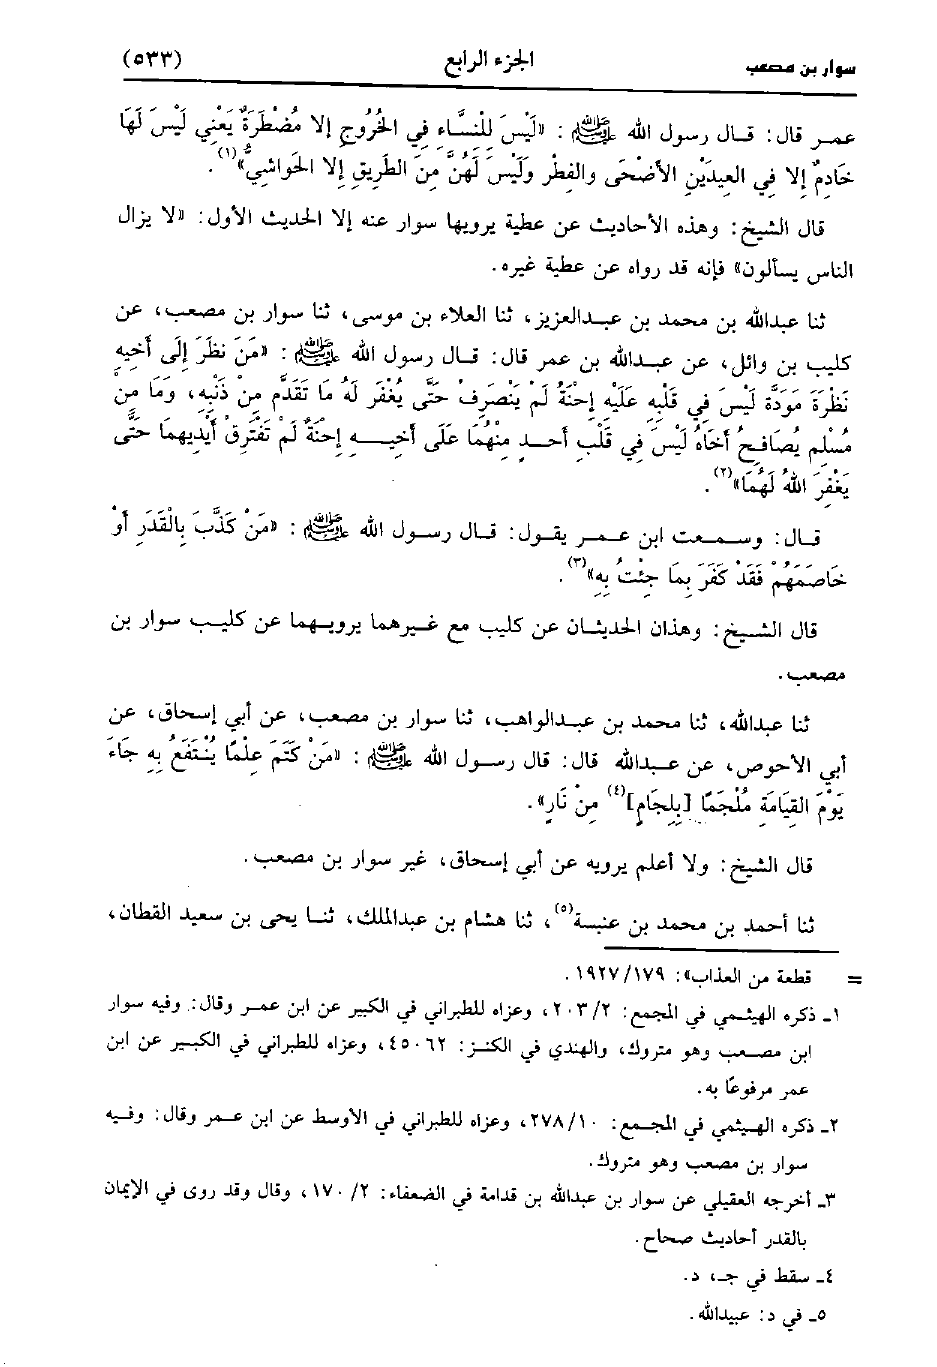 سوار بن مصعب الجزء الرابع (٥٣٣)
عمر قال: قال رسول الله ﷺ: «لَيْسَ لِلْنِّسَّاءِ فِي الخُرُوجِ إِلا مُضْطَرَةٌ يَعْنِي لَيْسَ لَهَا
خَادِمٌ إِلا فِي العِيدَيْنِ الأَضْحَى والفِطْر وَلَيْسَ لَهُنَّ مِنَ الطَّرِيقِ إِلا الحَوَاشِيُّ»(١).
قال الشيخ: وهذه الأحاديث عن عطية يرويها سوار عنه إلا الحديث الأول: «لا يزال
الناس يسألون» فإنه قد رواه عن عطية غيره.
ثنا عبدالله بن محمد بن عبدالعزيز، ثنا العلاء بن موسى، ثنا سوار بن مصعب، عن
كليب بن وائل، عن عبدالله بن عمر قال: قال رسول الله ﷺ: «مَنْ نَظَرَ إِلَى أَخِيهِ
نَظْرَةَ مَوَدَّة لَيْسَ فِي قَلْبِهِ عَلَيْهِ إِحْنَةٌ لَمْ يَنْصَرِفْ حَتَّى يُغْفَر لَهُ مَا تَقَدَّم مِنْ ذَنْبِهِ، وَمَا مِنْ
مُسْلِم يُصَافِحُ أَخَاهُ لَيْسَ فِي قَلْبِ أَحد مِنْهُمَا عَلَى أَخِيه إِحْنَةٌ لَمْ تَفْتَرِقْ أَيْدِيهِمَا حَتَّى
يَغْفِرَ اللهُ لَهُمَا»(٢).
قال: وسمعت ابن عمر يقول: قال رسول الله ﷺ: «مَنْ كَذَّبَ بِالْقَدَرِ أَوْ
خَاصَمَهُمْ فَقَدْ كَفَرَ بِمَا جِئْتُ بِهِ»(٣).
قال الشيخ: وهذان الحديثان عن كليب مع غيرهما يرويهما عن كليب سوار بن
مصعب.
ثنا عبدالله، ثنا محمد بن عبدالواهب، ثنا سوار بن مصعب، عن أبي إسحاق، عن
أبي الأحوص، عن عبدالله قال: قال رسول الله ﷺ: «مَنْ كَتَمَ عِلْمًا يُنْتَفَعُ بِهِ جَاءَ
يَوْمَ القِيَامَةِ مُلْجَمًا [بِلِجَامٍ](٤) مِنْ نَارٍ».
قال الشيخ: ولا أعلم يرويه عن أبي إسحاق، غير سوار بن مصعب.
ثنا أحمد بن محمد بن عنبسة(٥)، ثنا هشام بن عبدالملك، ثنا يحى بن سعيد القطان،
= قطعة من العذاب»: ١٩٢٧/١٧٩.
١ـ ذكره الهيثمي في المجمع: ٢٠٣/٢، وعزاه للطبراني في الكبير عن ابن عمر وقال: وفيه سوار
ابن مصعب وهو متروك، والهندي في الكنز: ٤٥٠٦٢، وعزاه للطبراني في الكبير عن ابن
عمر مرفوعًا به.
٢ـ ذكره الهيثمي في المجمع: ٢٧٨/١٠، وعزاه للطبراني في الأوسط عن ابن عمر وقال: وفيه
سوار بن مصعب وهو متروك.
٣ـ أخرجه العقيلي عن سوار بن عبدالله بن قدامة في الضعفاء: ١٧٠/٢، وقال وقد روى في الإيمان
بالقدر أحاديث صحاح.
٤ـ سقط في جـ، د.
٥ـ في د: عبيدالله.